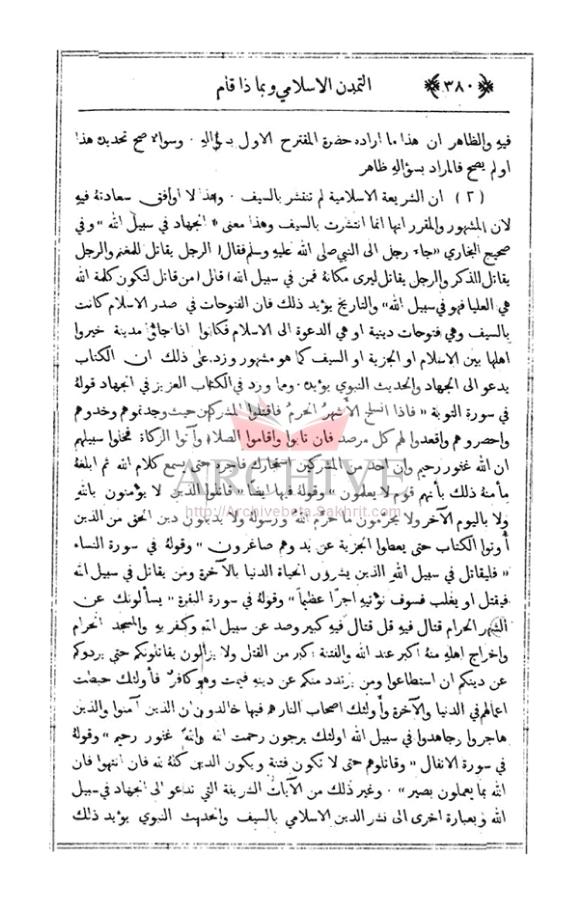 ﴿٣٨٠﴾ التمدن الاسلامي وبماذا قام
فيهِ والظاهر ان هذا ما اراده حضرة المقترح الاول بسؤالهِ . وسواء صح تحديدهُ هذا
او لم يصح فالمراد بسؤالهِ ظاهر
(٢) ان الشريعة الاسلامية لم تنتشر بالسيف . وهذا لا اوافق سعادتهُ فيهِ
لان المشهور والمقرر انها انما انتشرت بالسيف وهذا معنى «الجهاد في سبيل الله» وفي
صحيح البخاري «جاء رجل الى النبي صلى الله عليهِ وسلم فقال (الرجل يقاتل للمغنم والرجل
يقاتل للذكر والرجل يقاتل ليرى مكانهُ فمن في سبيل الله) قال (من قاتل لتكون كلمة الله
هي العليا فهو في سبيل الله» والتاريخ يؤيد ذلك فان الفتوحات في صدر الاسلام كانت
بالسيف وهي فتوحات دينية او هي الدعوة الى الاسلام فكانوا اذا جاؤا مدينة خيروا
اهلها بين الاسلام او الجزية او السيف كما هو مشهور وزد على ذلك ان الكتاب
يدعو الى الجهاد والحديث النبوي يؤيده . ومما ورد في الكتاب العزيز في الجهاد قولهُ
في سورة التوبة «فاذا انسلخ الأشهرُ الحرمُ فاقتلوا المشركين حيث وجدتموهم وخدوهم
واحصروهم واقعدوا لهم كل مرصد فان تابوا واقاموا الصلاة وآتوا الزكاة فخلوا سبيلهم
ان الله غفور رحيم وإن احد من المشركين استجارك فاجره حتى يسمع كلام الله ثم ابلغهُ
مأمنهُ ذلك بأنهم قوم لا يعلمون» وقولهُ فيها ايضاً «قاتلوا الذين لا يؤمنون باللهِ
ولا باليوم الآخر ولا يحرمون ما حرَّم اللهُ ورسولهُ ولا يدينون دين الحق من الذين
أُوتوا الكتاب حتى يعطوا الجزية عن يد وهم صاغرون» وقولهُ في سورة النساء
«فليقاتل في سبيل اللهِ الذين يشرون الحياة الدنيا بالآخرة ومن يقاتل في سبيل اللهِ
فيقتل او يغلب فسوف نؤتيهِ اجرًا عظيماً» وقولهُ في سورة البقرة «يسألونك عن
الشهر الحرام قتال فيهِ قل قتال فيهِ كبير وصد عن سبيل الله وكفر بهِ والمسجد الحرام
واخراج اهلهِ منهُ اكبر عند الله والفتنة اكبر من القتل ولا يزالون يقاتلونكم حتى يردوكم
عن دينكم ان استطاعوا ومن يرتدد منكم عن دينهِ فيمت وهو كافر فأولئك حبطت
اعمالهم في الدنيا والآخرة وأولئك اصحاب النار هم فيها خالدون ان الذين آمنوا والذين
هاجروا وجاهدوا في سبيل الله اولئك يرجون رحمت الله واللهُ غفور رحيم» وقولهُ
في سورة الانفال «وقاتلوهم حتى لا تكون فتنة ويكون الدين كلهُ لله فان انتهوا فان
الله بما يعملون بصير» . وغير ذلك من الآيات الشريفة التي تدعو الى الجهاد في سبيل
الله وبعبارة اخرى الى نشر الدين الاسلامي بالسيف والحديث النبوي يؤيد ذلك
ARCHIVE
http://Archivebeta.Sakhrit.com